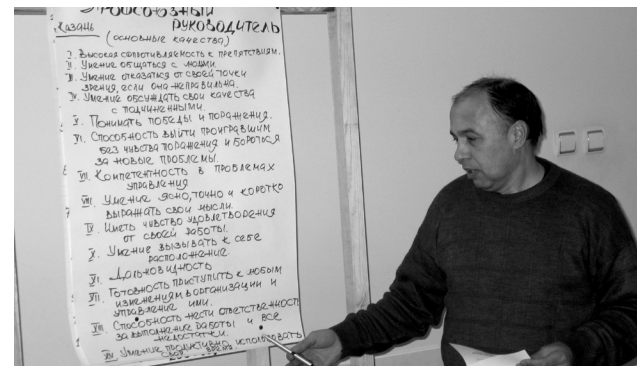 ПРОФСОЮЗНЫЙ
Казань РУКОВОДИТЕЛЬ
(основные качества)
I. Высокая сопротивляемость к препятствиям.
II. Умение общаться с людьми.
III. Умение отказаться от своей точки
зрения, если она неправильна.
IV. Умение обсуждать свои качества
с подчиненными.
V. Понимать победы и поражения.
VI. Способность выйти проигравшим
без чувства поражения и бороться
за новые проблемы.
VII. Компетентность в проблемах
управления
VIII. Умение ясно, точно и коротко
выражать свои мысли.
IX. Иметь чувство удовлетворения
от своей работы.
X. Умение вызывать к себе
расположение.
XI. Дольновидность
XII. Готовность приступить к любым
изменениям в организации и
управление ими.
XIII. Способность нести ответственность
за выполнение работы и все
недостатки.
XIV. Умение продуктивно использовать
свое время